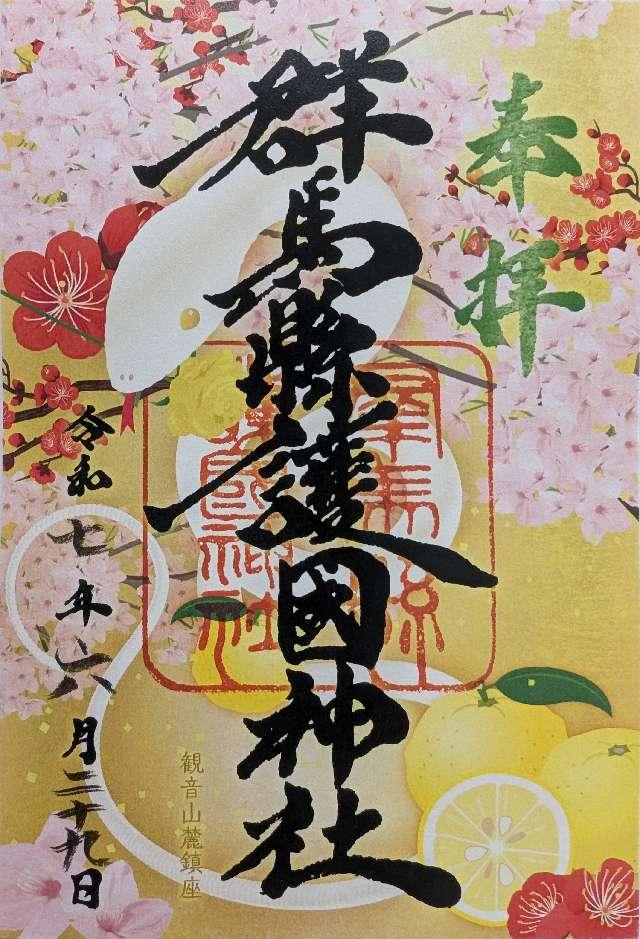 奉拝
群馬縣護國神社
群馬縣護國神社
観音山麓鎮座
令和七年六月二十九日